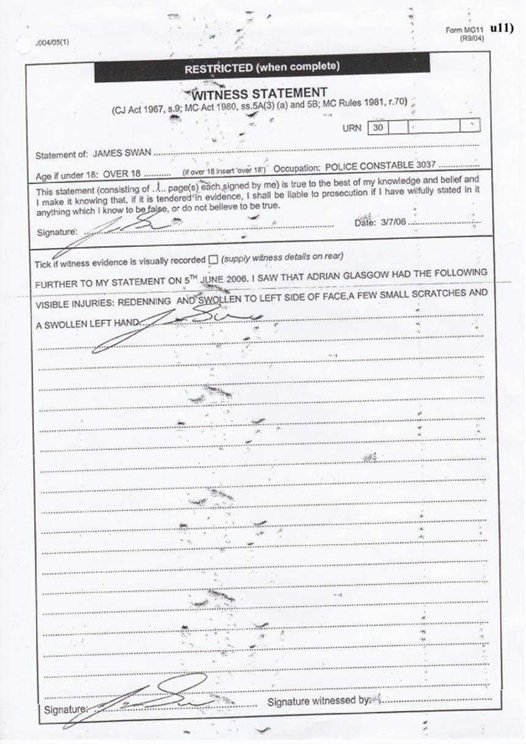 Form MG11 u11)
2004/05(1) (R9/04)
RESTRICTED (when complete)
WITNESS STATEMENT
(CJ Act 1967, s.9; MC Act 1980, ss.5A(3) (a) and 5B; MC Rules 1981, r.70)
URN 30
Statement of: JAMES SWAN
Age if under 18: OVER 18 (if over 18 insert 'over 18') Occupation: POLICE CONSTABLE 3037
This statement (consisting of ..1.. page(s) each signed by me) is true to the best of my knowledge and belief and
I make it knowing that, if it is tendered in evidence, I shall be liable to prosecution if I have wilfully stated in it
anything which I know to be false, or do not believe to be true.
Signature: Date: 3/7/06
Tick if witness evidence is visually recorded (supply witness details on rear)
FURTHER TO MY STATEMENT ON 5TH JUNE 2006. I SAW THAT ADRIAN GLASGOW HAD THE FOLLOWING
VISIBLE INJURIES: REDENNING AND SWOLLEN TO LEFT SIDE OF FACE,A FEW SMALL SCRATCHES AND
A SWOLLEN LEFT HAND.
Signature: Signature witnessed by: